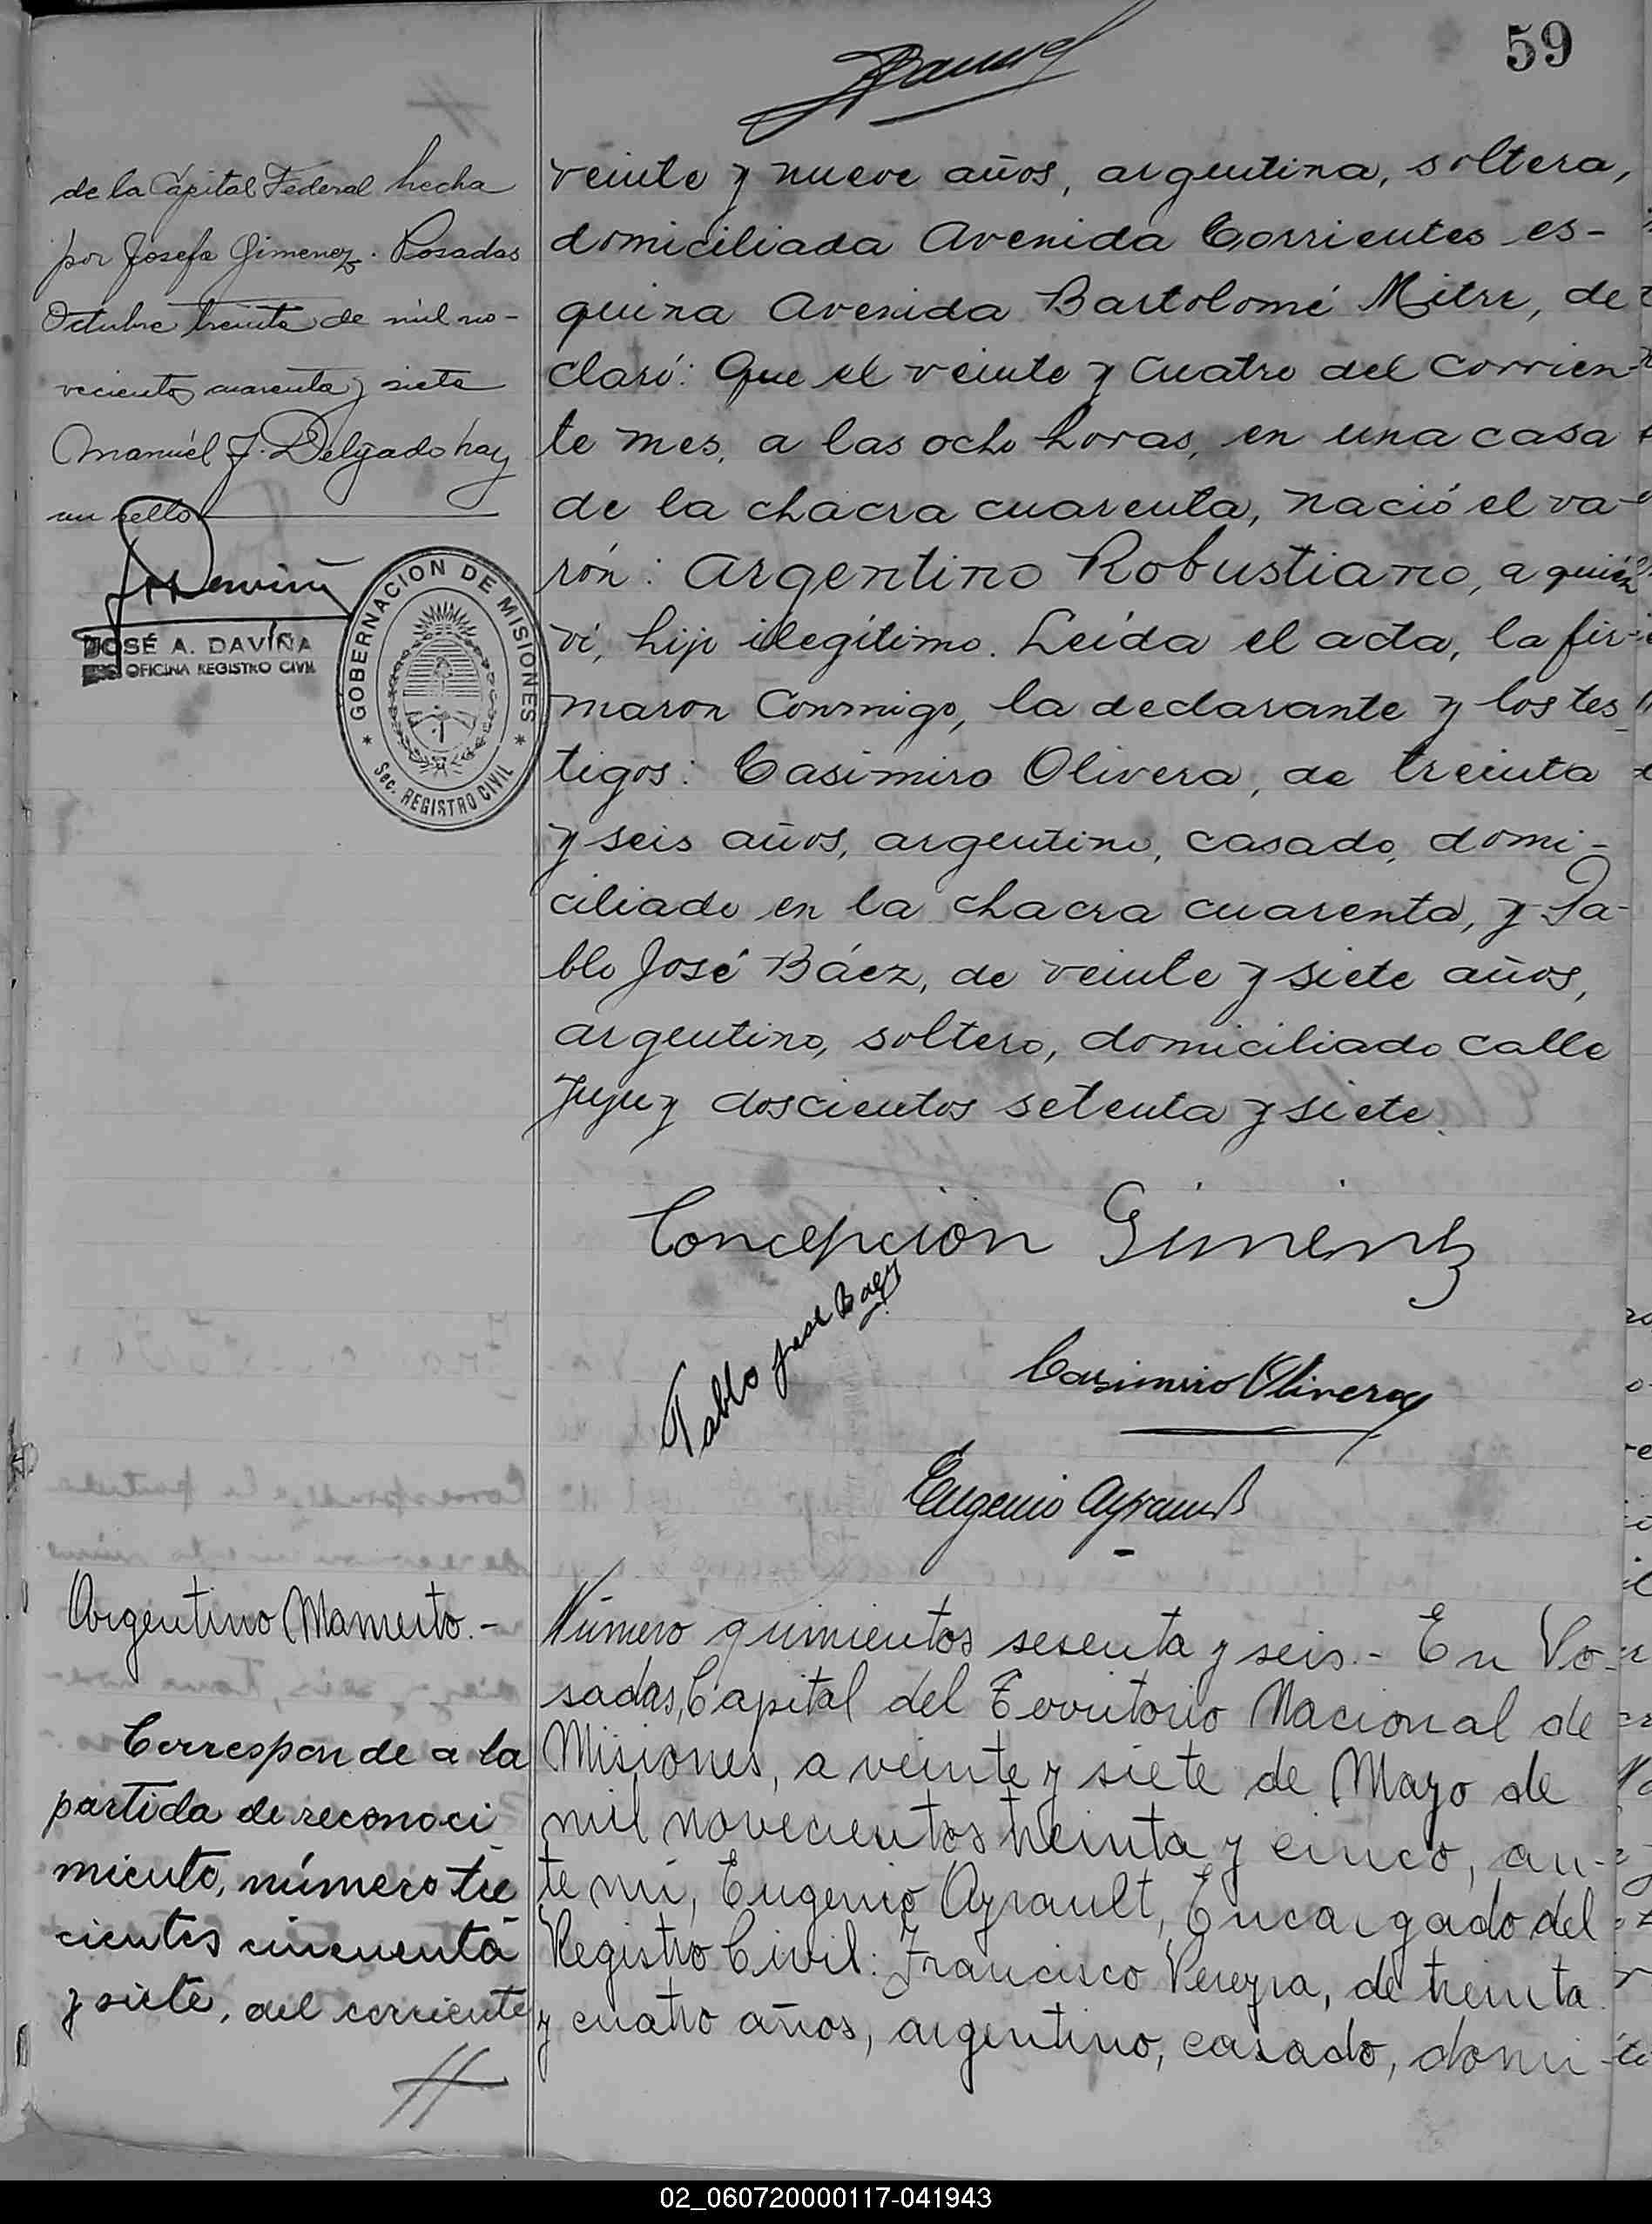 59
de la Capital Federal hecha
por Josefa Gimenez. Posadas
Octubre treinta de mil no-
vecientos cuarenta y siete
Manuel J. Delgado hay
un sello
JOSÉ A. DAVIÑA
OFICINA REGISTRO CIVIL
GOBERNACION DE MISIONES
Sec. REGISTRO CIVIL
veinte y nueve años, argentina, soltera,
domiciliada Avenida Corrientes es-
quina Avenida Bartolomé Mitre, de
claró: Que el veinte y cuatro del corrien-
te mes, a las ocho horas, en una casa
de la chacra cuarenta, nació el va-
rón: Argentino Robustiano, a quien
ví, hijo ilegítimo. Leída el acta, la fir-
maron conmigo, la declarante y los tes
tigos: Casimiro Olivera, de treinta
y seis años, argentino, casado, domi-
ciliado en la chacra cuarenta, y Pa-
blo José Báez, de veinte y siete años,
argentino, soltero, domiciliado calle
Jujuy doscientos setenta y siete.
Concepción Gimenez
Pablo José Baez
Casimiro Olivera
Eugenio Ayrault
Argentino Mamerto.-
Corresponde a la
partida de reconoci
miento, número tre
cientos cincuenta
y siete, del corriente
Número quinientos sesenta y seis.- En Po-
sadas, Capital del Territorio Nacional de
Misiones, a veinte y siete de Mayo de
mil novecientos treinta y cinco, an-
te mí, Eugenio Ayrault, Encargado del
Registro Civil: Francisco Pereyra, de treinta
y cuatro años, argentino, casado, domi-
02_060720000117-041943